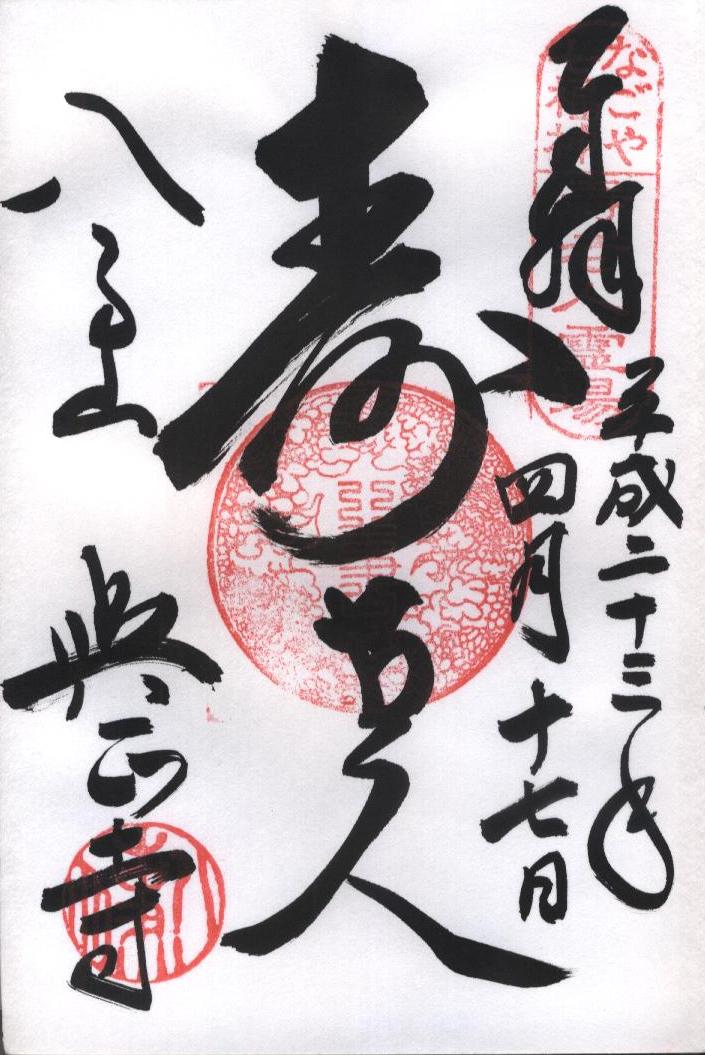 奉拝
なごや
霊場
平成二十三年
四月十七日
寿老人
八事山
興正寺